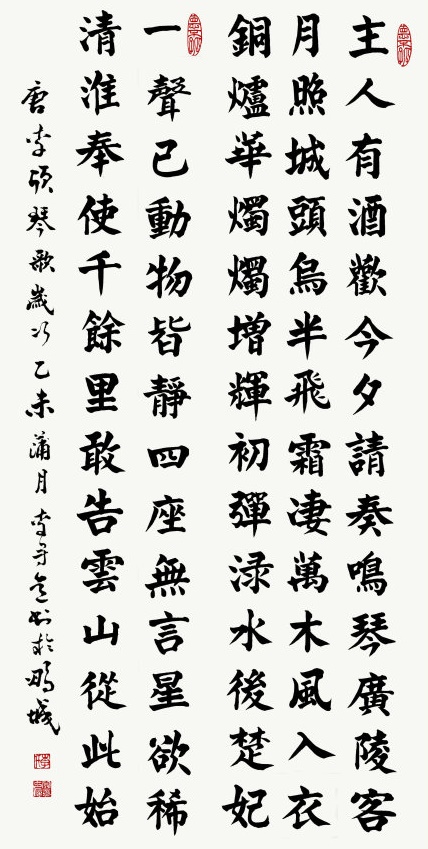 主人有酒歡今夕請奏鳴琴廣陵客
月照城頭烏半飛霜淒萬木風入衣
銅爐華燭燭增輝初彈淥水後楚妃
一聲已動物皆靜四座無言星欲稀
清淮奉使千餘里敢告雲山從此始
唐李頎琴歌歲次乙未蒲月李書於鵬城